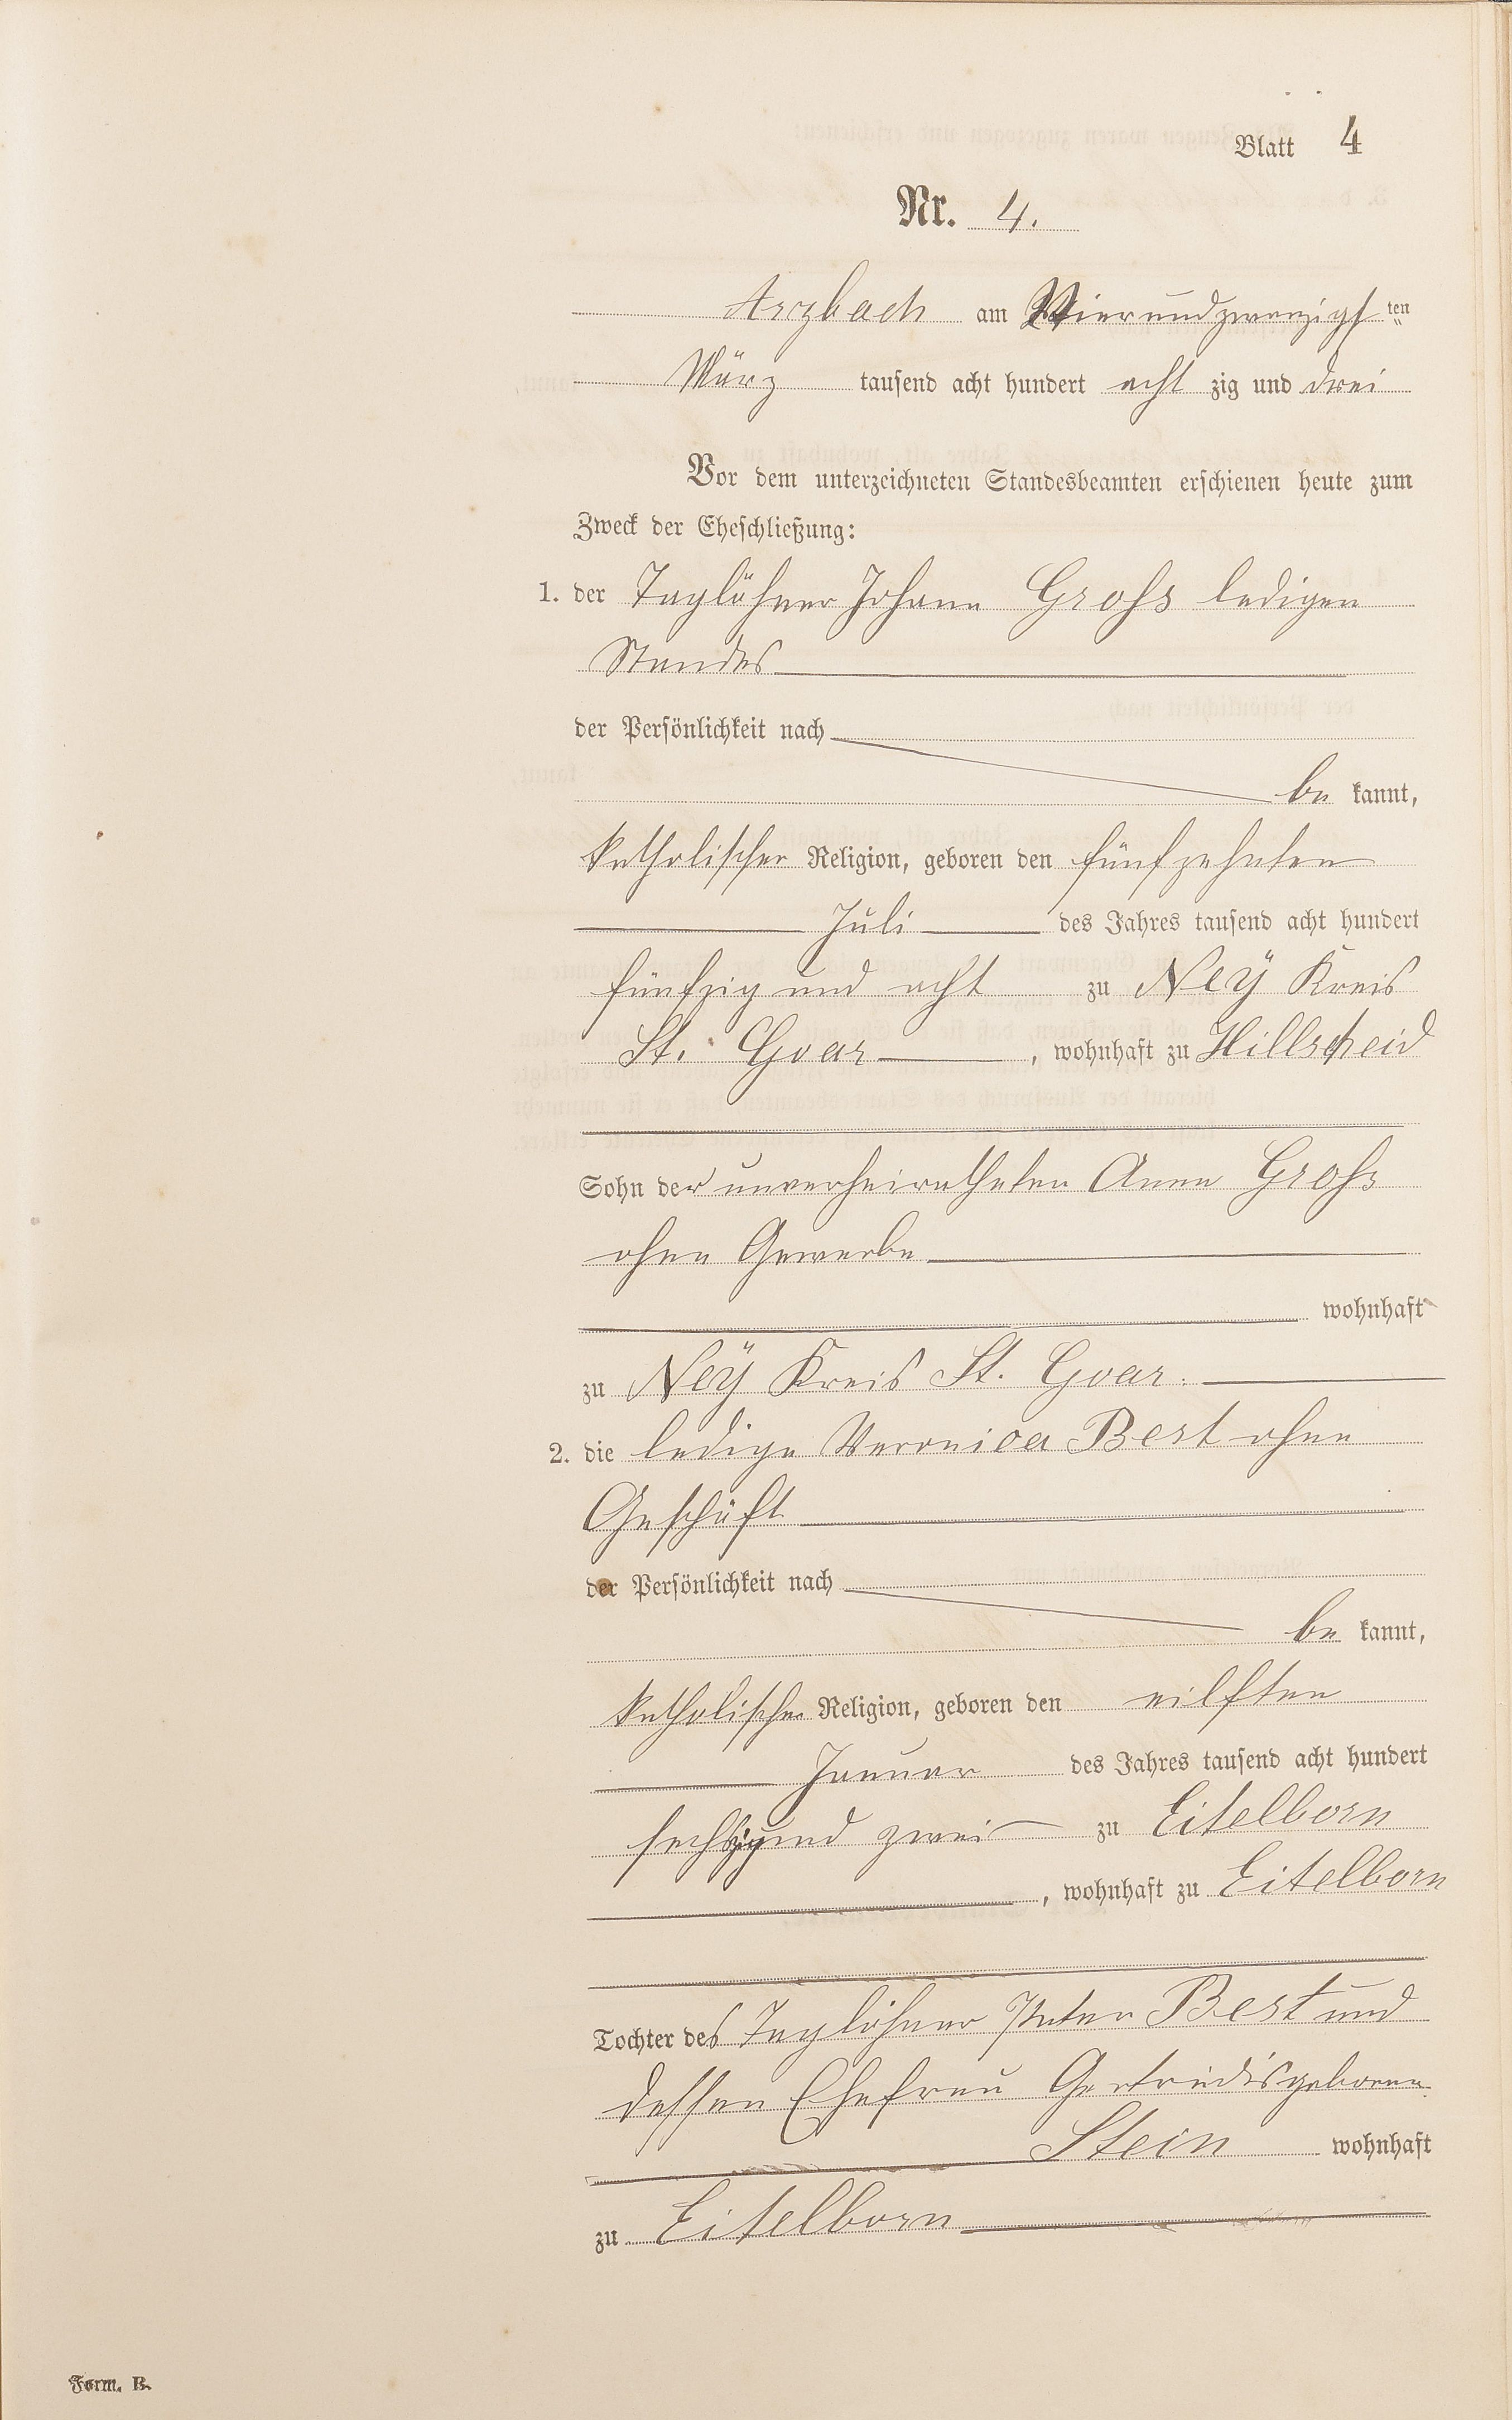 Blatt 4
Nr. 4.
Arzbach am Vierundzwanzigsten
März tausend acht hundert acht zig und drei
Vor dem unterzeichneten Standesbeamten erschienen heute zum
Zweck der Eheschließung:
1. der Taglöhner Johann Groß ledigen
Standes
der Persönlichkeit nach
be kannt,
katholischer Religion, geboren den fünfzehnten
Juli des Jahres tausend acht hundert
fünfzig und acht zu Neÿ Kreis
St. Goar, wohnhaft zu Hillscheid
Sohn der unverheiratheten Anna Groß
ohne Gewerbe
wohnhaft
zu Neÿ Kreis St. Goar.
2. die ledige Veronica Best ohne
Geschäft
der Persönlichkeit nach
be kannt,
katholischer Religion, geboren den eilften
Januar des Jahres tausend acht hundert
sechzig und zwei zu Eitelborn
, wohnhaft zu Eitelborn
Tochter des Taglöhner Peter Best und
dessen Ehefrau Gertrudis geborene
Stein wohnhaft
zu Eitelborn
Form. B.